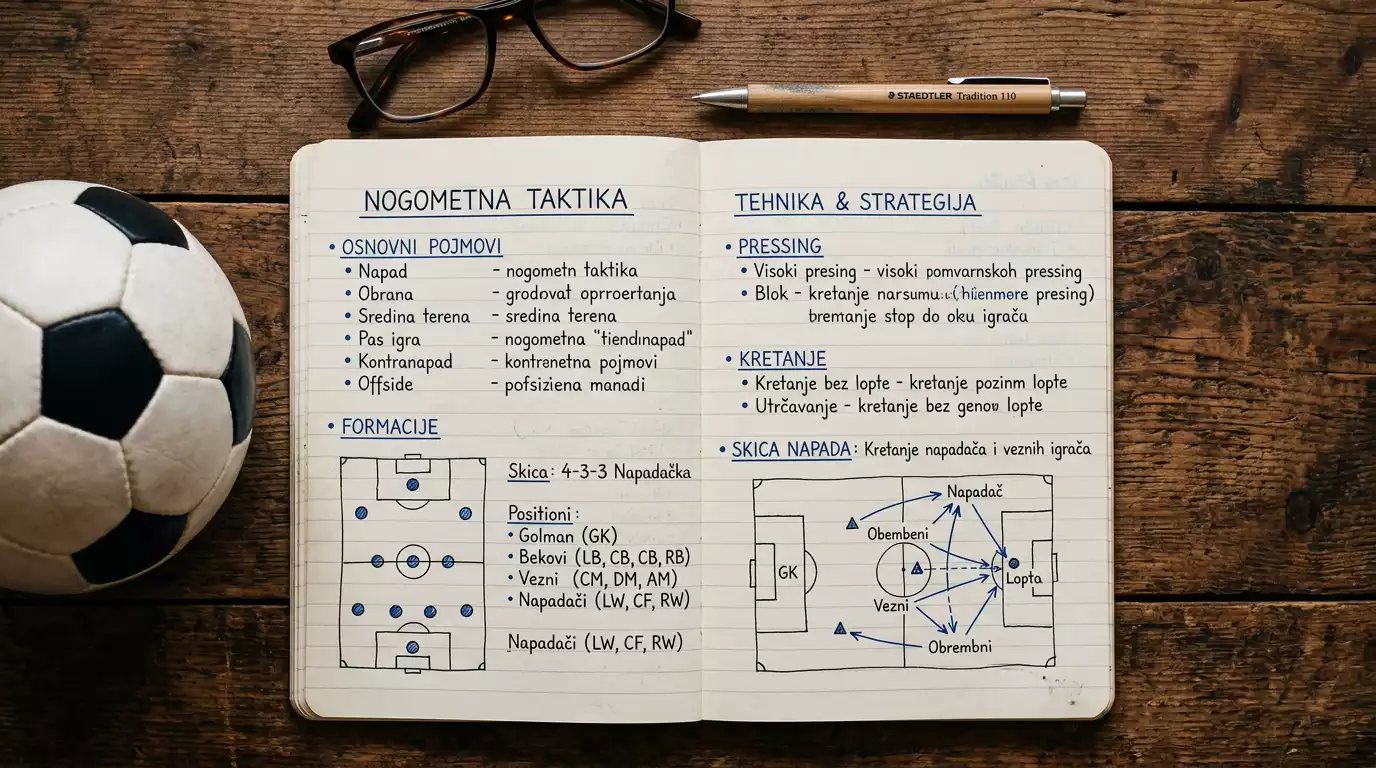 STAEDTLER Tradition 110
NOGOMETNA TAKTIKA
• OSNOVNI POJMOVI
• Napad - nogometn taktika
• Obrana - grodovat oprroertanja
• Sredina terena - sredina terena
• Pas igra - nogometna "tiendınapad"
• Kontranapad - kontrenetna pojmovi
• Offside - pofsiziena manadi
• FORMACIJE
Skica: 4-3-3 Napadačka
Positioni:
• Golman (GK)
• Bekovi (LB, CB, CB, RB)
• Vezni (CM, DM, AM)
• Napadači (LW, CF, RW)
Napadači (LW, CF, RW)
TEHNIKA & STRATEGIJA
• PRESSING
• Visoki presing - visoki pomvarnskoh pressing
• Blok - kretanje narsumu presing)
bremanje stop do oku igrača
• KRETANJE
• Kretanje bez lopte - kretanje pozinm lopte
• Utrčavanje - kretanje bez genou lopte
• SKICA NAPADA: Kretanje napadača i veznih igrača
Napadač
Obembeni
GK
Lopta
Vezni
Obrembni